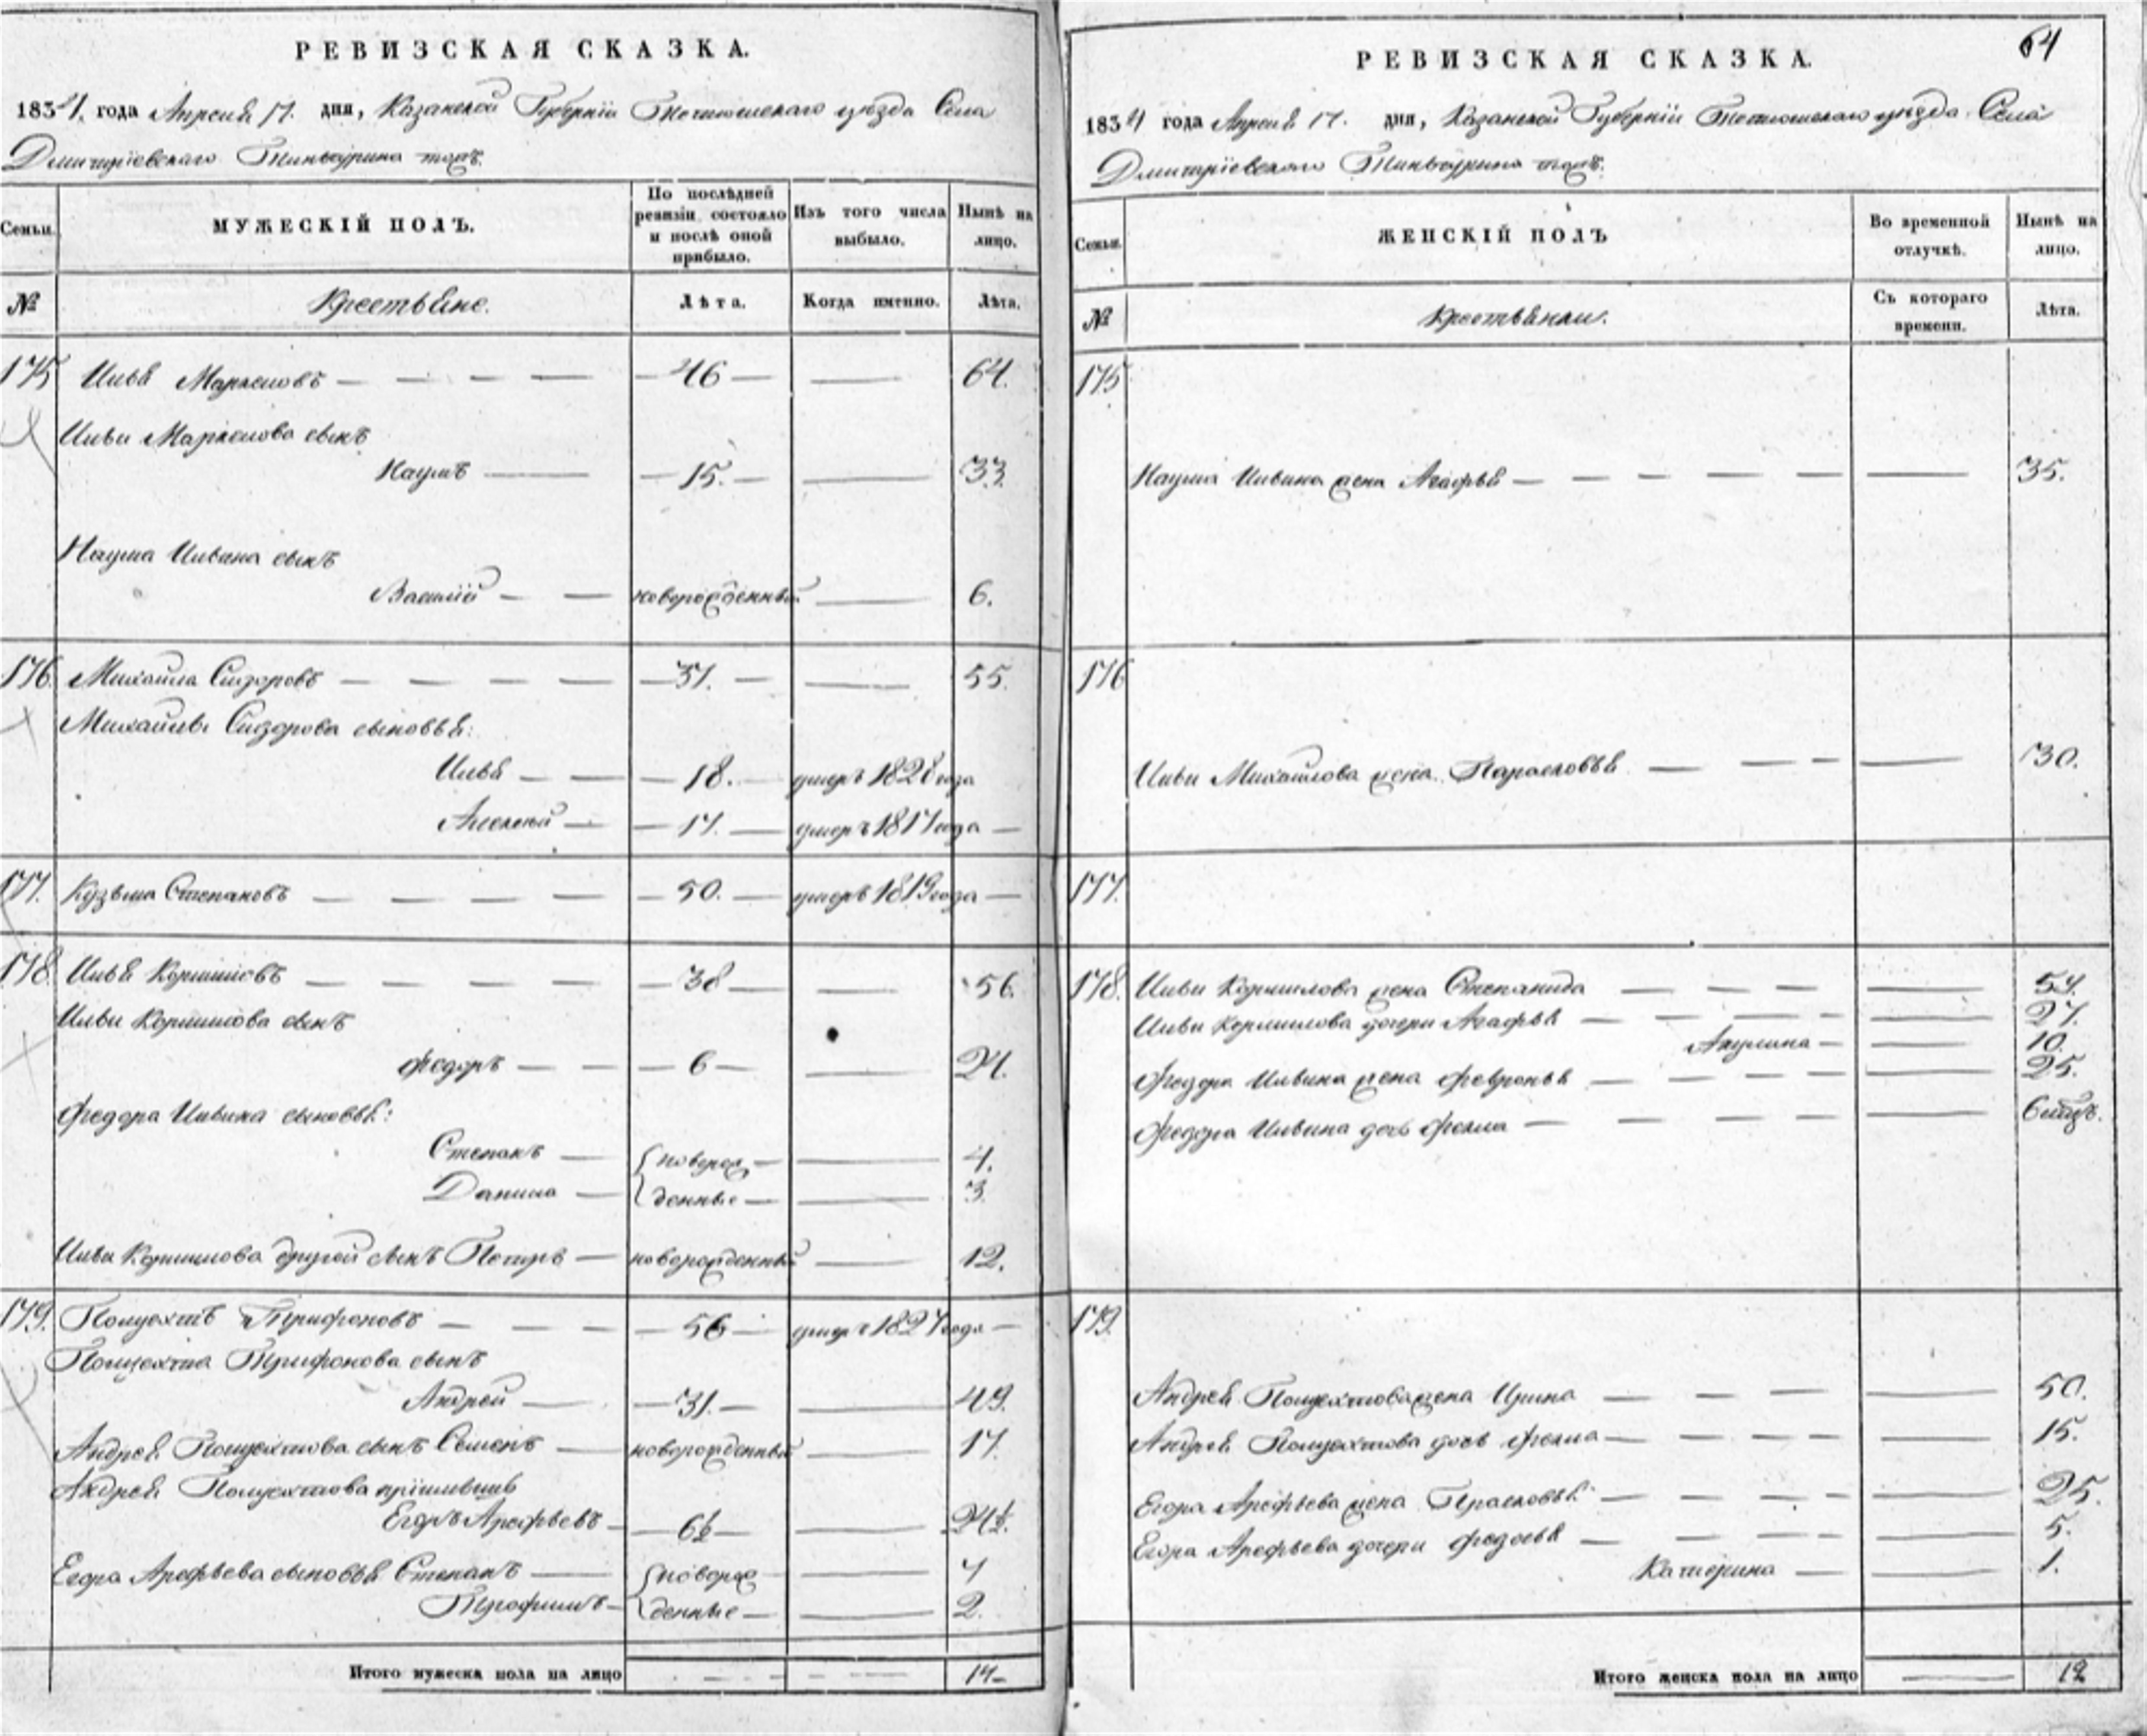 РЕВИЗСКАЯ СКАЗКА.
1834. года Апреля 17. дня, Казанской Губернiи Тетюшскаго уѣзда Села
Дмитрiевскаго
Семьи.
МУЖЕСКIЙ ПОЛЪ.
По послѣдней ревизiи состояло и послѣ оной прибыло.
Изъ того числа выбыло.
Нынѣ на лицо.
№
Крестьяне.
Лѣта.
Когда именно.
Лѣта.
175 Илья 46 64.
Ильи сынъ
Наумъ 15. 33.
Наума Ильина сынъ
Василiй новорожденный 6.
176. Михайла Сидоровъ 37. 55.
Михайлы Сидорова сыновья:
Илья 18. умеръ 1828 года
Алексей 17. умеръ 1817 года
177. Кузьма Степановъ 50. умеръ 1819 года
178. Илья Корниловъ 38 56.
Ильи Корнилова сынъ
Федоръ 6 24.
Федора Ильина сыновья:
Степанъ новорож 4.
Данила денные 3.
Ильи Корнилова другой сынъ Петръ новорожденный 12.
179. Полуехтъ Трифоновъ 56 умеръ 1827 года
Полуехта Трифонова сынъ
Андрей 31. 49.
Андрея Полуехтова сынъ Семенъ новорожденный 17.
Андрея Полуехтова
Егоръ Арефьевъ 6½ 24½.
Егора Арефьева сыновья Степанъ новорож
Трофимъ денные 2.
Итого мужеска пола на лицо 14
64
РЕВИЗСКАЯ СКАЗКА.
1834 года Апреля 17. дня, Казанской Губернiи Тетюшскаго уѣзда Села
Дмитрiевскаго
Семьи.
ЖЕНСКIЙ ПОЛЪ
Во временной отлучкѣ.
Нынѣ на лицо.
№
Крестьянки.
Съ котораго времени.
Лѣта.
175
Наума Ильина жена Агафья 35.
176
Ильи Михайлова жена Парасковья 30.
177.
178. Ильи Корнилова жена Степанида 54.
Ильи Корнилова дочери Агафья 27.
Акулина 10.
Федора Ильина жена Февронья 25.
Федора Ильина дочь Фекла
179.
Андрея Полуехтова жена Ирина 50.
Андрея Полуехтова дочь Фекла 15.
Егора Арефьева жена Прасковья 25.
Егора Арефьева дочери Федосья 5.
Катерина 1.
Итого женска пола на лицо 12